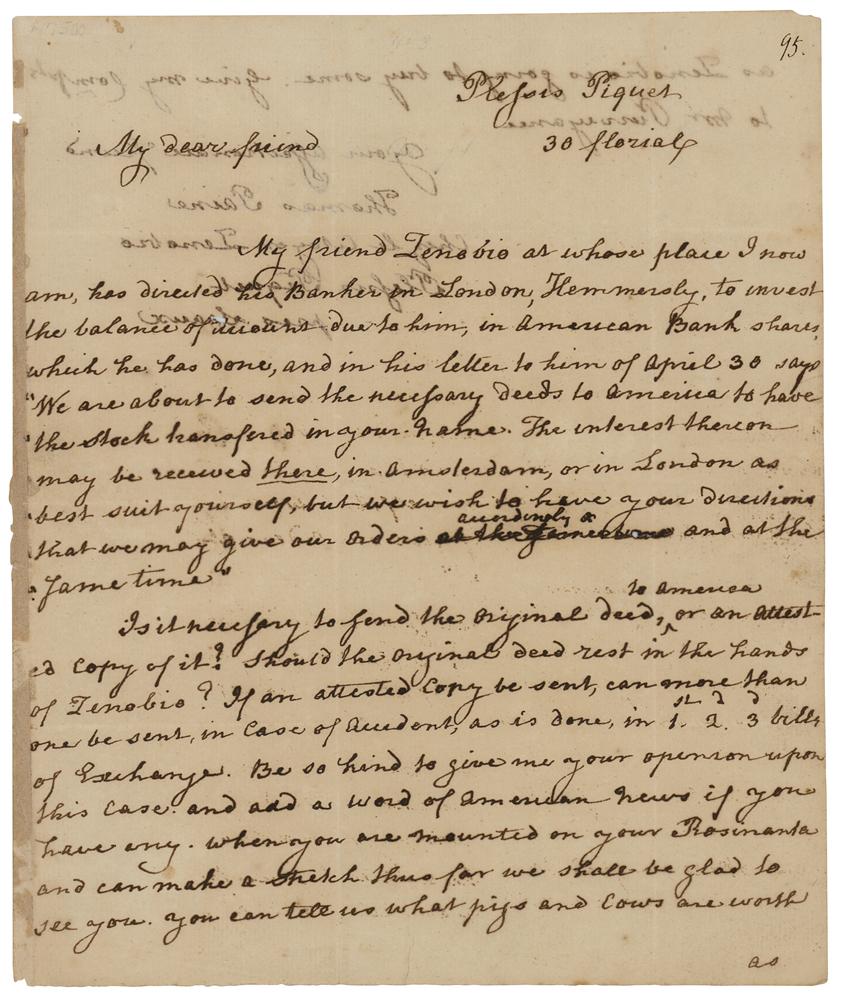 95.
Plessis Piquet
My dear friend 30 florial
My friend Zenobio at whose place I now
am, has directed his Banker in London, Hemmersly, to invest
the balance of account due to him, in American Bank shares,
which he has done, and in his letter to him of April 30 says
"We are about to send the necessary deeds to America to have
"the Stock transfered in your Name. The interest thereon
may be received there, in Amsterdam, or in London as
"best suit yourself, but we wish to have your directions
accordingly
"that we may give our orders at the same time and at the
"same time"
to America
Is it necessary to send the original deed, or an attest-
ed Copy of it? Should the original deed rest in the hands
of Zenobio? If an attested Copy be sent, can more than
one be sent, in Case of Accident, as is done, in 1.st 2.d 3d bills
of Exchange. Be so kind to give me your openson upon
this Case. and add a word of American News if you
have any. When you are mounted on your Rosinanta
and can make a stretch thus far we shall be glad to
see you. You can tell us what pigs and Cows are worth
as